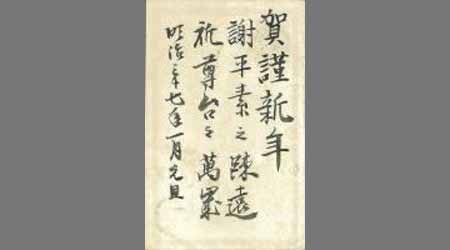 賀謹新年
謝平素之踈遠
祈尊台之萬
明治三十七年一月元旦